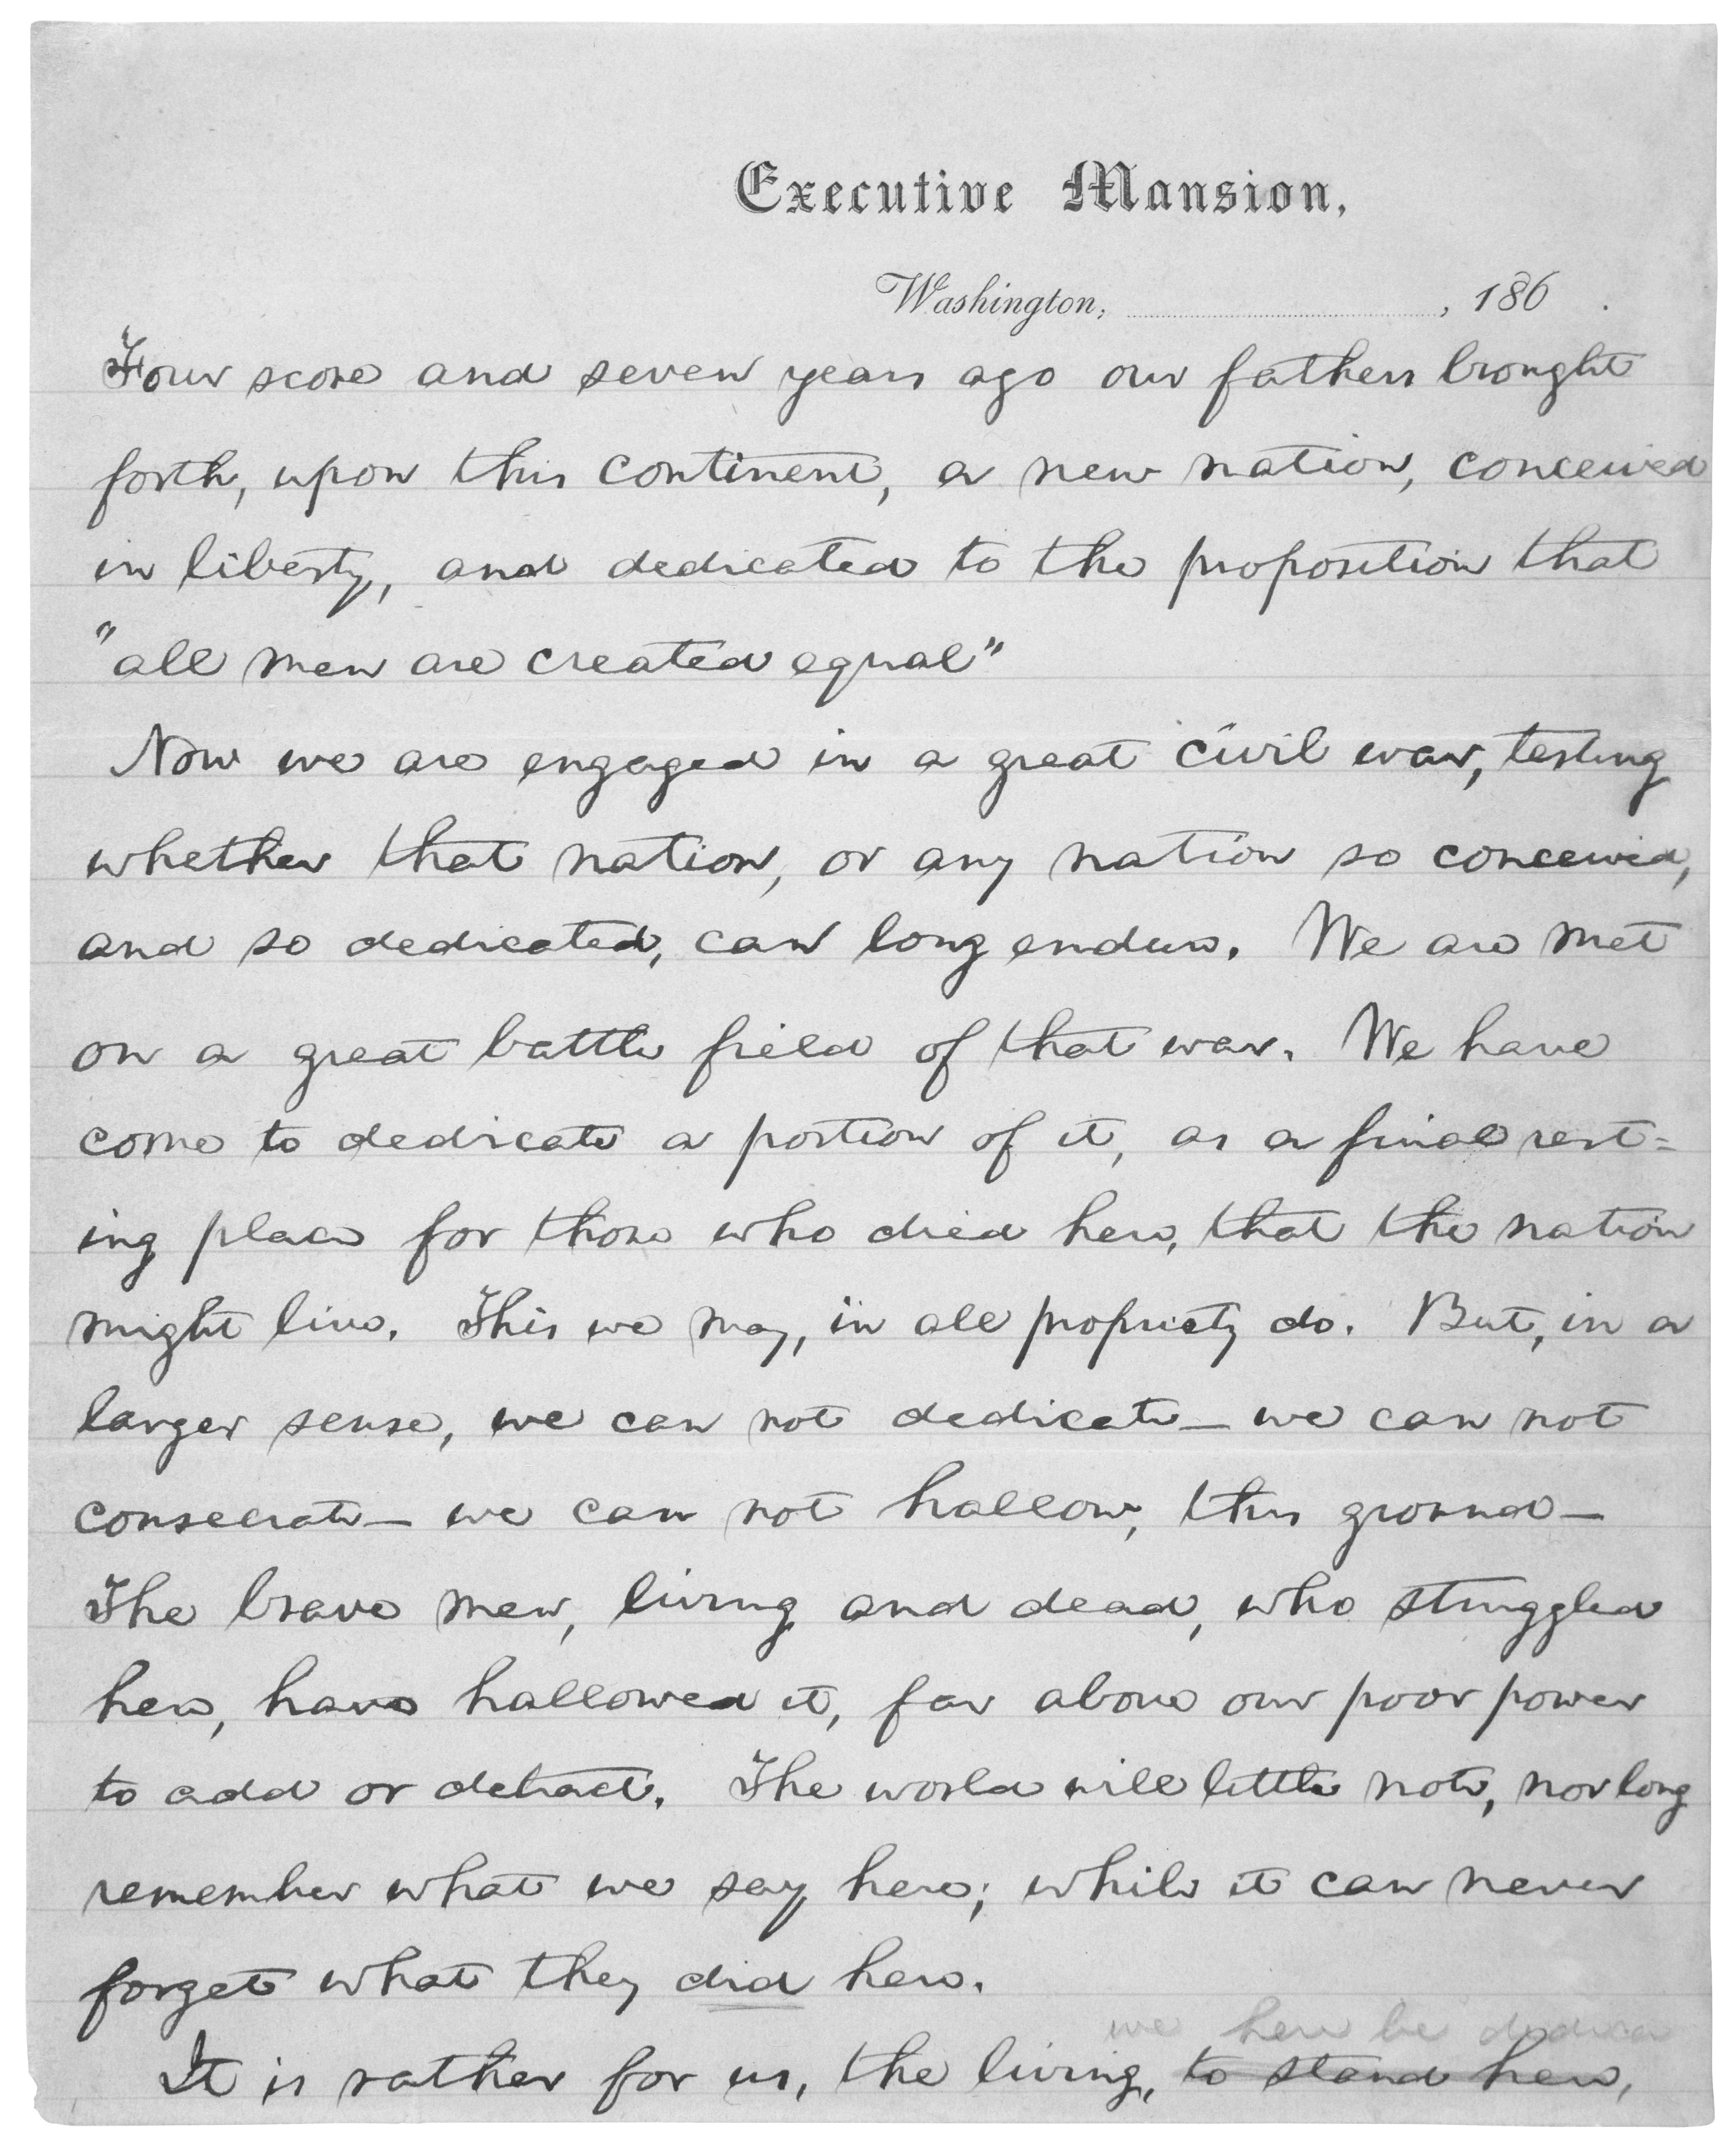 Executive Mansion,
Washington, , 186 .
Four score and seven years ago our fathers brought
forth, upon this continent, a new nation, conceived
in liberty, and dedicated to the proposition that
"all men are created equal"
Now we are engaged in a great civil war, testing
whether that nation, or any nation so conceived,
and so dedicated, can long endure. We are met
on a great battle field of that war. We have
come to dedicate a portion of it, as a final rest=
ing place for those who died here, that the nation
might live. This we may, in all propriety do. But, in a
larger sense, we can not dedicate — we can not
consecrate — we can not hallow, this ground —
The brave men, living and dead, who struggled
here, have hallowed it, far above our poor power
to add or detract. The world will little note, nor long
remember what we say here; while it can never
forget what they did here.
we here be dedica
It is rather for us, the living, to stand here,